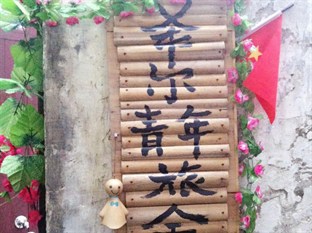 希
尔
青年
旅
舍